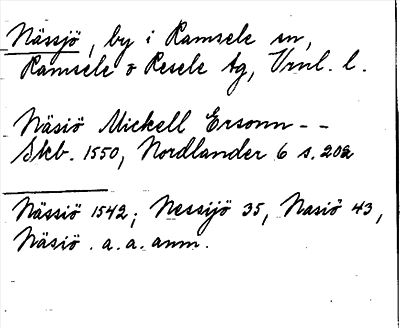 Nässjö, by i Ramsele sn,
Ramsele o Resele tg, Vrnl. l.
Näsiö Mickell Ersonn - -
Skb. 1550, Nordlander 6 s. 202
Nässiö 1542; Nessijö 35, Nasiö 43,
Näsiö . a. a. anm.